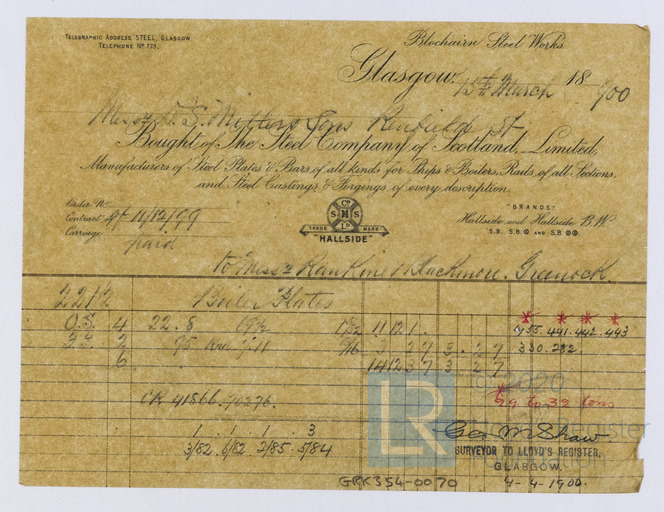 Telegraphic Address STEEL, Glasgow.
Telephone No 773.
Blochairn Steel Works.
Glasgow, 15th March 1900
Messrs D. S. Sons Renfield St
Bought of The Steel Company of Scotland, Limited,
Manufacturers of Steel Plates & Bars of all kinds for Ships & Boilers, Rails of all Sections,
and Steel Castings & Forgings of every description.
Order No
Contract of 11/12/99
Carriage paid
S Co S Ld
TRADE MARK
"HALLSIDE"
"BRANDS"
Hallside and Hallside B.W.
S.B. S.B. AND S.B.
To Messrs Rankine & Blackmore. Greenock.
2212 Boiler Plates
4 22.8 11 12 1 441.442.443
2 95 3 2 7 3 . 2 7 330.232
6 14 12 3 7 3 2 7
© 2020
29 to 32 tons
CR 41866.70276.
LR
Lloyd's Register Foundation
1 . 1 . 1 . 3
3/82 6/82 2/85 5/84
Geo M Shaw
SURVEYOR TO LLOYD'S REGISTER,
GLASGOW.
4-4-1900
GRK354-0070